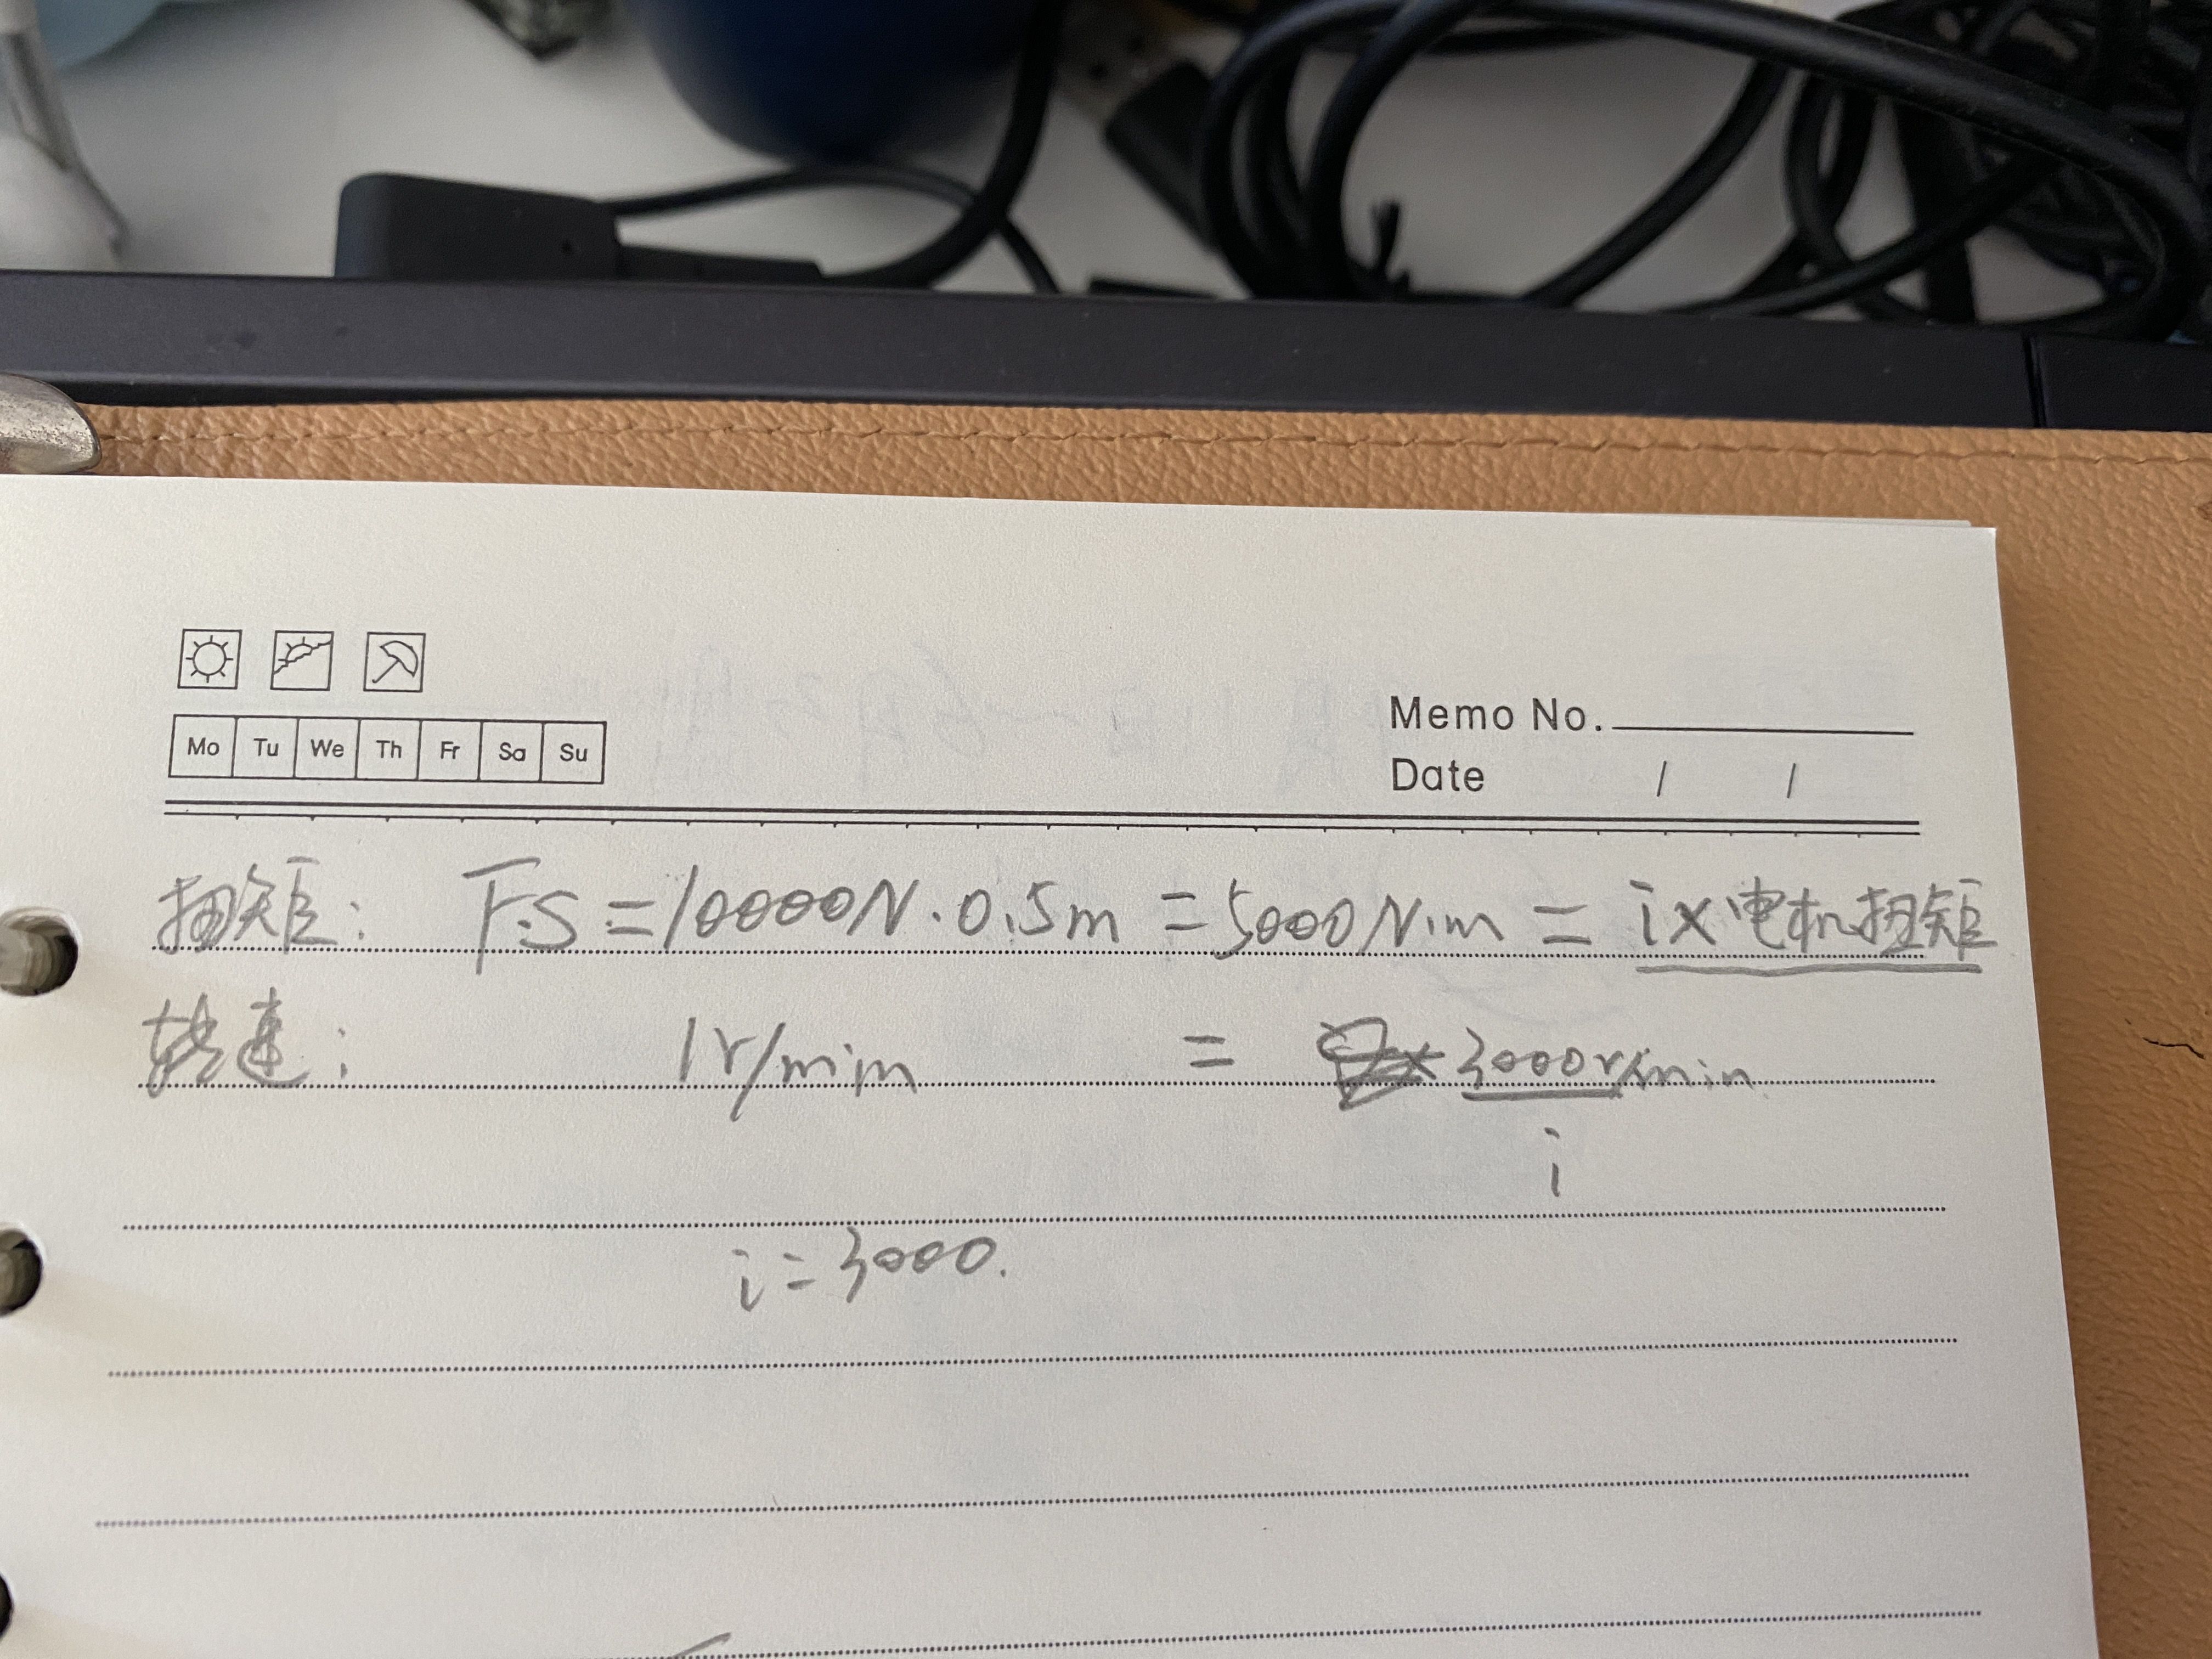 Mo Tu We Th Fr Sa Su
Memo No.
Date / /
扭矩: F·S=10000N·0.5m=5000N·m=i×电机扭矩
转速: 1r/min = 3000r/min
i
i=3000.